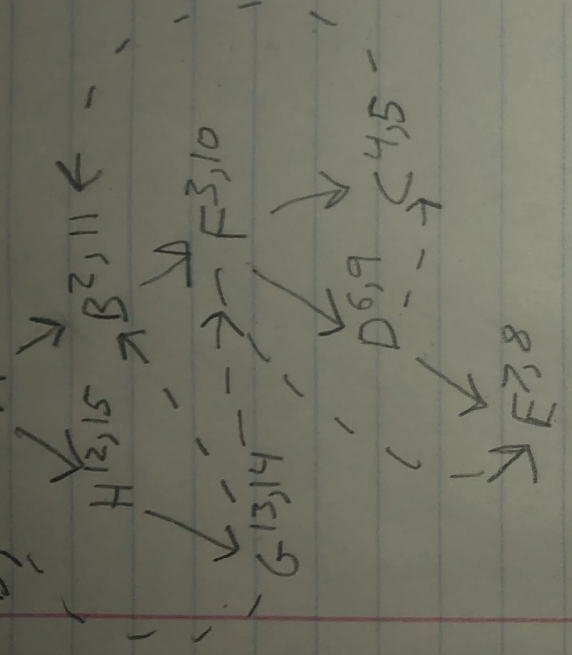 H^12,15 B^2,11
G^13,14 F^3,10
D^6,9 C^4,5
E^7,8